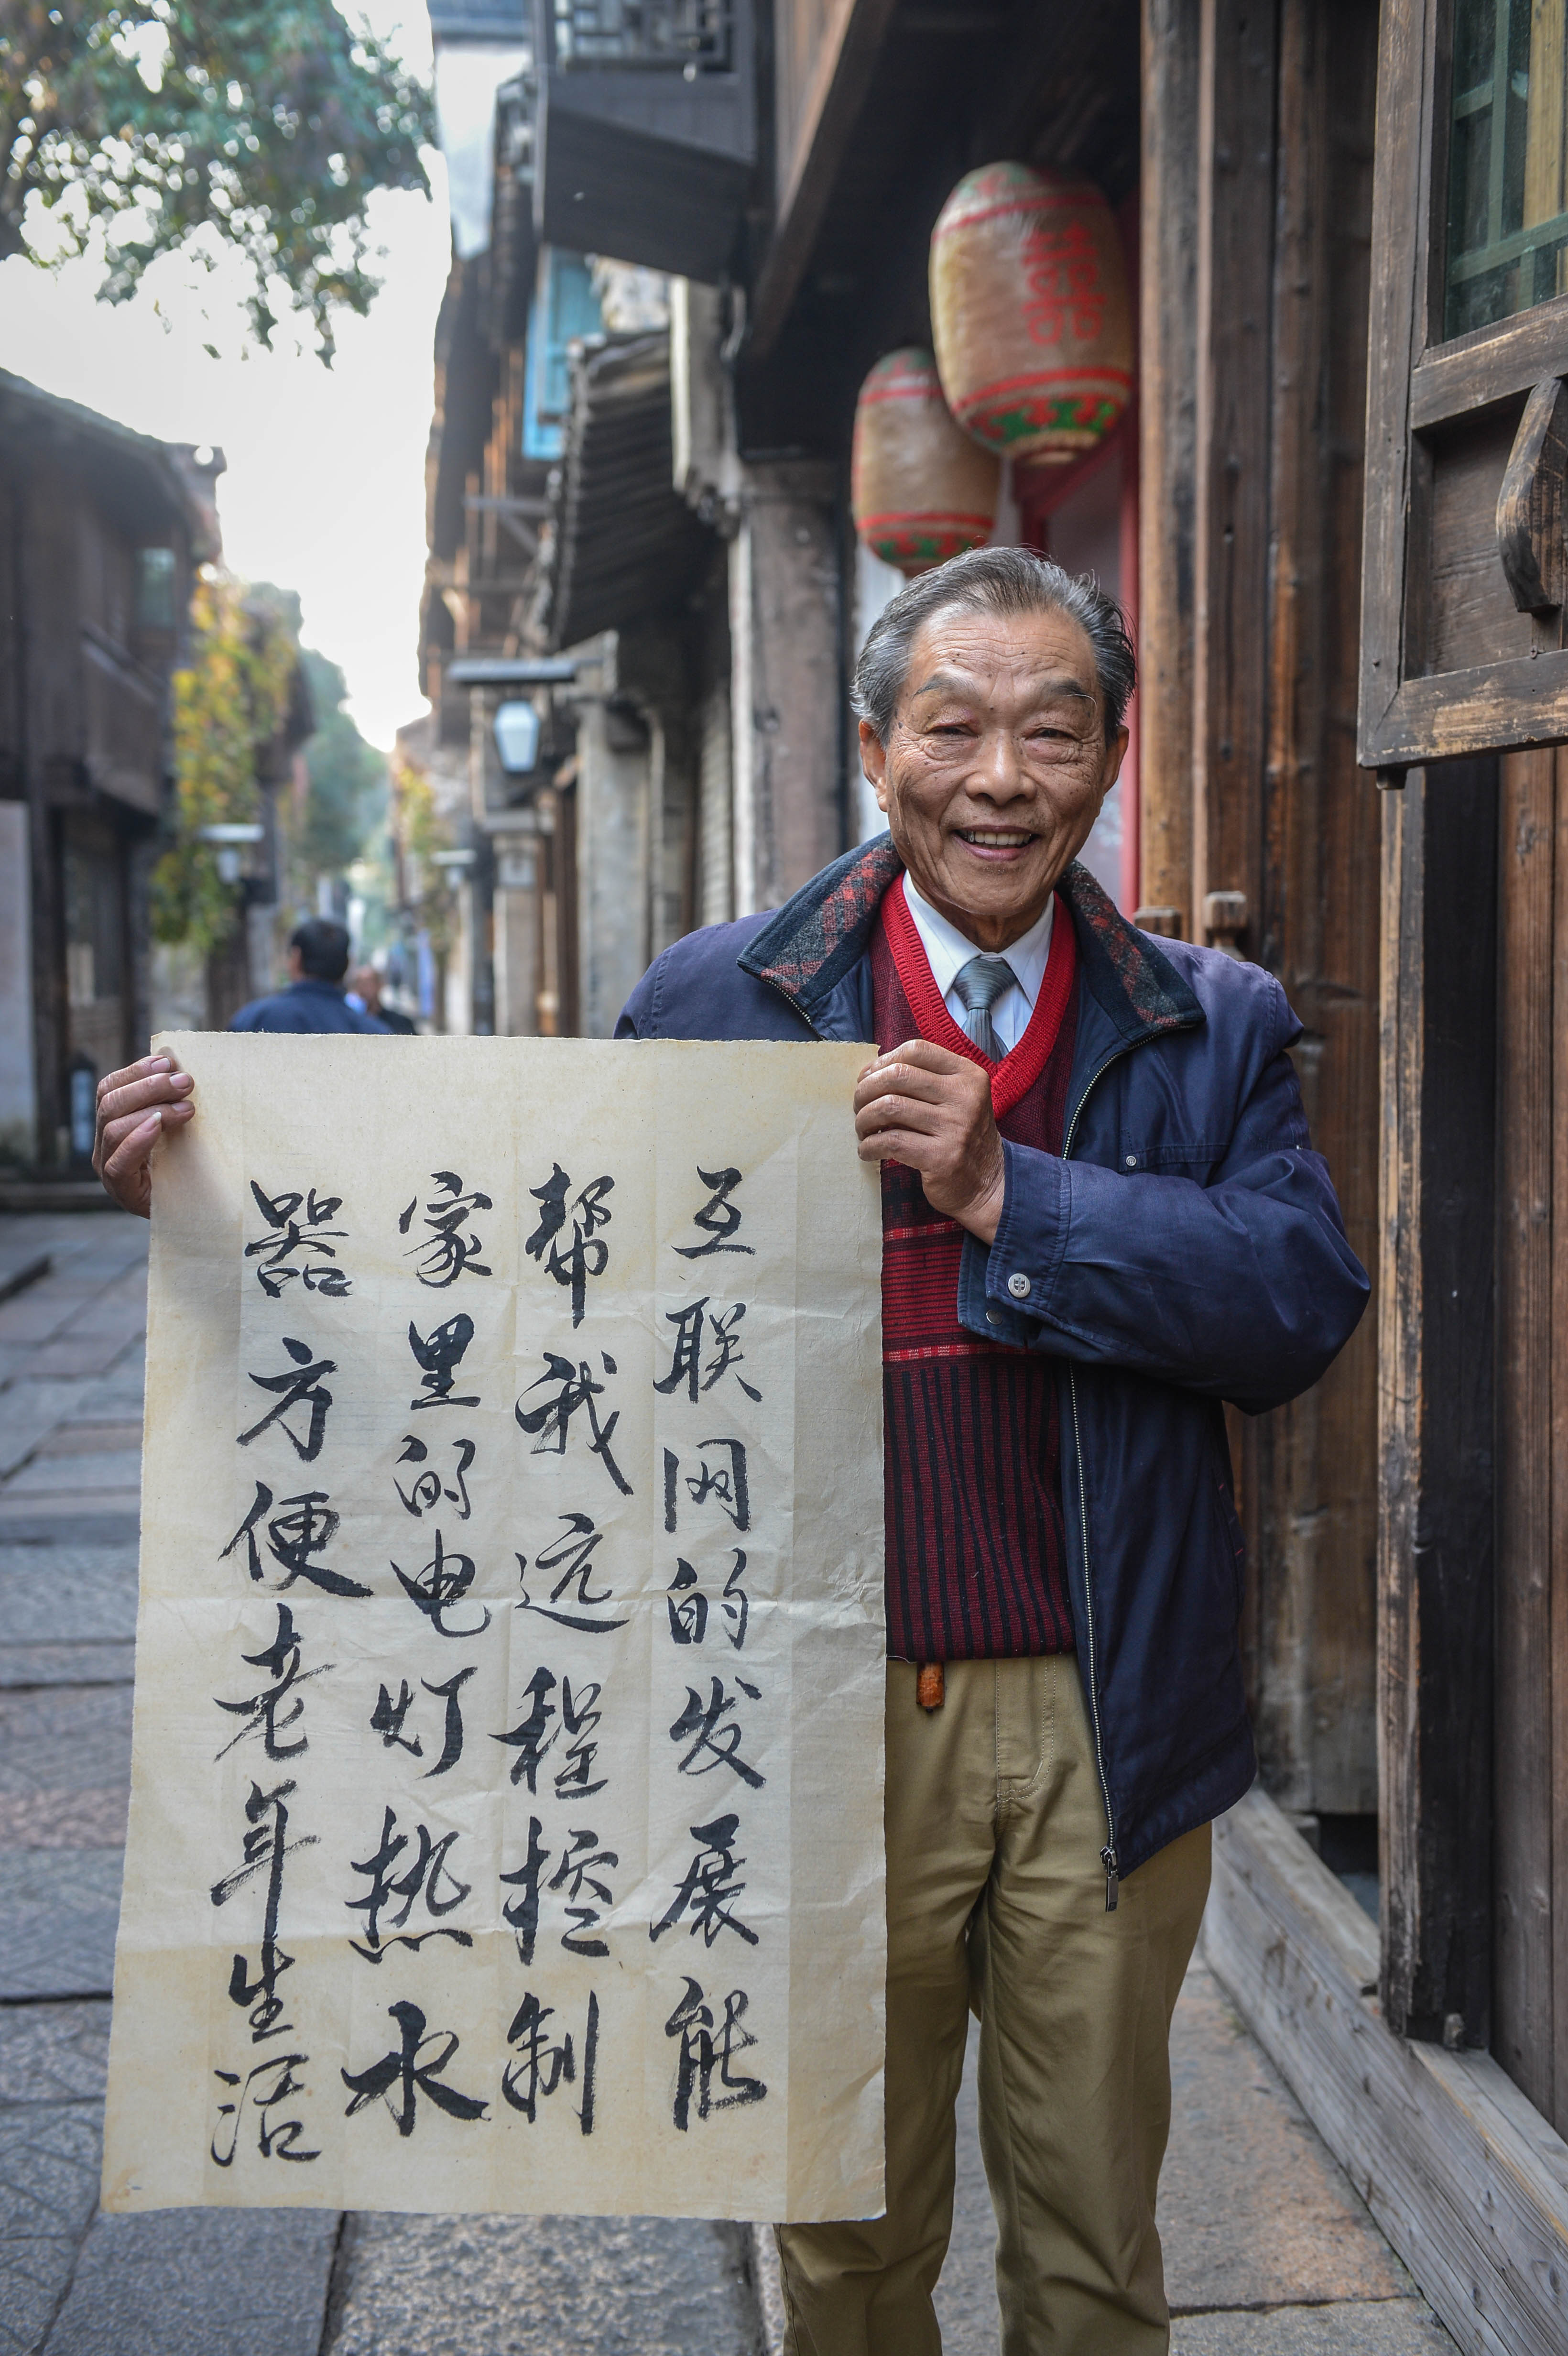 互联网的发展能
帮我远程控制
家里的电灯热水
器方便老年生活
囍